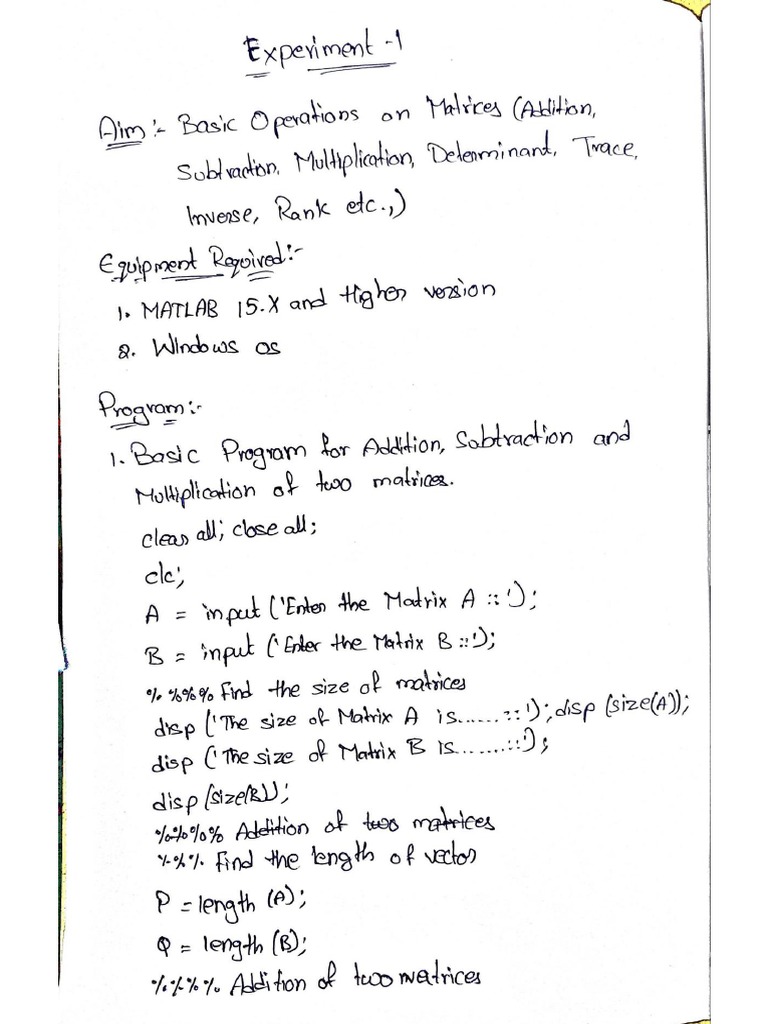 Experiment -1
Aim:- Basic Operations on Matrices (Addition,
Subtraction, Multiplication, Determinant, Trace,
Inverse, Rank etc.,)
Equipment Required:-
1. MATLAB 15.X and Higher version
2. Windows os
Program:-
1. Basic Program for Addition, Subtraction and
Multiplication of two matrices.
clear all; close all;
clc;
A = input ('Enter the Matrix A ::');
B = input ('Enter the Matrix B ::');
%%%% Find the size of matrices
disp ('The size of Matrix A is......::'); disp (size(A));
disp ('The size of Matrix B is.......::');
disp (size(B));
%%%% Addition of two matrices
%%% Find the length of vector
P = length (A);
Q = length (B);
%%%% Addition of two matrices